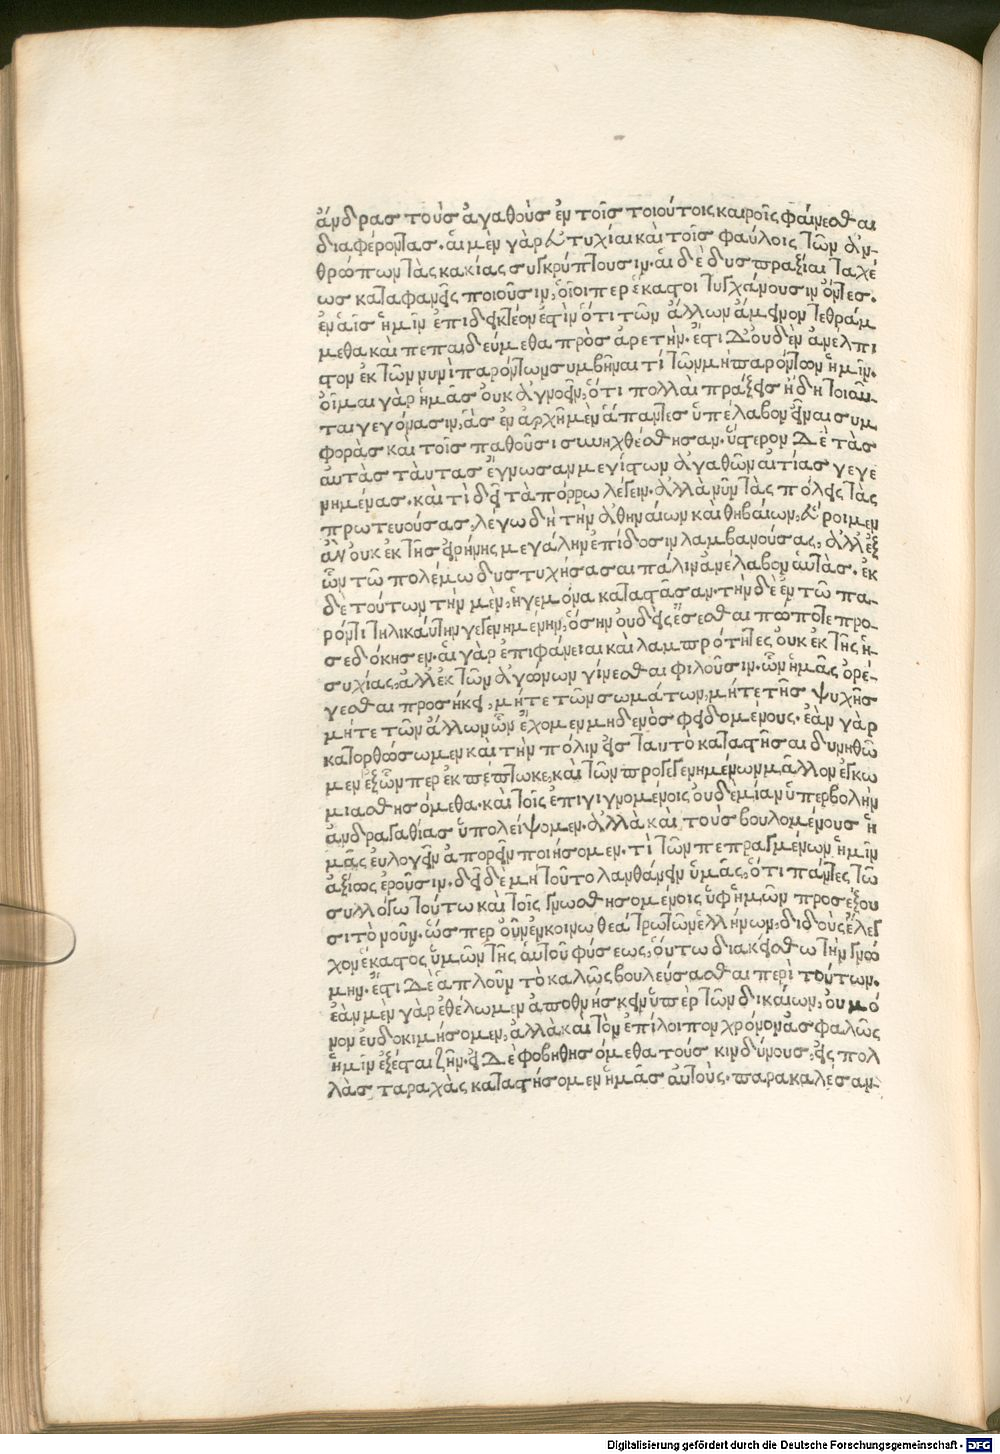 ἄνδρας τοὺς ἀγαθοὺς ἐν τοῖς τοιούτοις καιροῖς φαίνεσθαι
διαφέροντας. αἱ μὲν γὰρ εὐτυχίαι καὶ τοῖς φαύλοις τῶν ἀν-
θρώπων τὰς κακίας συγκρύπτουσιν. αἱ δὲ δυσπραξίαι ταχέ
ως καταφανεῖς ποιοῦσιν, ὁῖοί περ ἕκαστοι τυγχάνουσιν ὄντες.
ἐν αἷς ἡμῖν ἐπιδεικτέον ἐστὶν ὅτι τῶν ἄλλων ἄμεινον τεθράμ
μεθα καὶ πεπαιδεύμεθα πρὸς ἀρετήν. ἔστι δ' οὐδὲν ἀνέλπι
στον ἐκ τῶν νυνὶ παρόντων συμβῆναι τὶ τῶν μὴ παρόντων ἡμῖν.
οἶμαι γὰρ ἡμᾶς οὐκ ἀγνοεῖν, ὅτι πολλαὶ πράξεις ἤδη τοιαῦ-
ται γεγόνασιν, ἃς ἐν ἀρχῇ μὲν ἅπαντες ὑπέλαβον εἶναι συμ
φορὰς καὶ τοῖς παθοῦσι συνηχθέσθησαν. ὕστερον δὲ τὰς
αὐτὰς ταύτας ἔγνωσαν μεγίστων ἀγαθῶν αἰτίας γεγε
νημένας. καὶ τὶ δεῖ τὰ πόρρω λέγειν. ἀλλὰ νῦν τὰς πόλεις τὰς
πρωτευούσας, λέγω δὴ τὴν ἀθηναίων καὶ θηβαίων, εὕροιμεν
ἂν οὐκ ἐκ τῆς εἰρήνης μεγάλην ἐπίδοσιν λαμβανούσας, ἀλλ' ἐξ
ὧν τῷ πολέμω δυστυχήσασαι πάλιν ἀνέλαβον αὑτάς. ἐκ
δὲ τούτων τὴν μὲν, ἡγεμόνα καταστᾶσαν. τὴν δὲ ἐν τῷ πα-
ρόντι τηλικαύτην γεγενημένην, ὅσην οὐδεὶς ἔσεσθαι πώποτε προ-
σεδόκησεν. αἱ γὰρ ἐπιφάνειαι καὶ λαμπρότητες οὐκ ἐκ τῆς ἡ-
συχίας, ἀλλ' ἐκ τῶν ἀγώνων γίνεσθαι φιλοῦσιν. ὧν ἡμᾶς ὀρέ-
γεσθαι προσήκει, μήτε τῶν σωμάτων, μήτε τῆς ψυχῆς
μήτε τῶν ἄλλων ὧν ἔχομεν μηδενὸς φειδομένους. ἐὰν γὰρ
κατορθώσωμεν καὶ τὴν πόλιν εἰς ταυτὸ καταστῆσαι δυνηθῶ
μεν ἐξ ὧνπερ ἐκπέπτωκε, καὶ τῶν προγεγενημένων μᾶλλον ἐγκω
μιασθησόμεθα. καὶ τοῖς ἐπιγιγνομένοις οὐδεμίαν ὑπερβολὴν
ἀνδραγαθίας ὑπολείψομεν. ἀλλὰ καὶ τοὺς βουλομένους ἡ
μᾶς εὐλογεῖν ἀπορεῖν ποιήσομεν. τὶ τῶν πεπραγμένων ἡμῖν
ἀξίως ἐροῦσιν. δεῖ δὲ μὴ τοῦτο λανθάνειν ὑμᾶς, ὅτι πάντες τῶ
συλλόγω τούτω καὶ τοῖς γνωσθησομένοις ὑφ' ἡμῶν προσέξου
σι τὸν νοῦν. ὥσπερ οὖν ἐν κοινω θεάτρω τῶν ἑλλήνων, διδοὺς ἔλεγ
χον ἕκαστος ὑμῶν τῆς αὑτοῦ φύσεως, οὕτω διακείσθω τὴν γνώ
μην. ἔστι δὲ ἁπλοῦν τὸ καλῶς βουλεύσασθαι περὶ τούτων.
ἐὰν μὲν γὰρ ἐθέλωμεν ἀποθνήσκειν ὑπὲρ τῶν δικαίων, οὐ μό
νον εὐδοκιμήσομεν, ἀλλὰ καὶ τὸν ἐπίλοιπον χρόνον ἀσφαλῶς
ἡμῖν ἐξέσται ζῆν. εἰ δὲ φοβηθησόμεθα τοὺς κινδύνους, εἰς πολ
λὰς ταραχὰς καταστήσομεν ἡμᾶς αὐτούς. παρακαλέσαν-
Digitalisierung gefördert durch die Deutsche Forschungsgemeinschaft - DFG